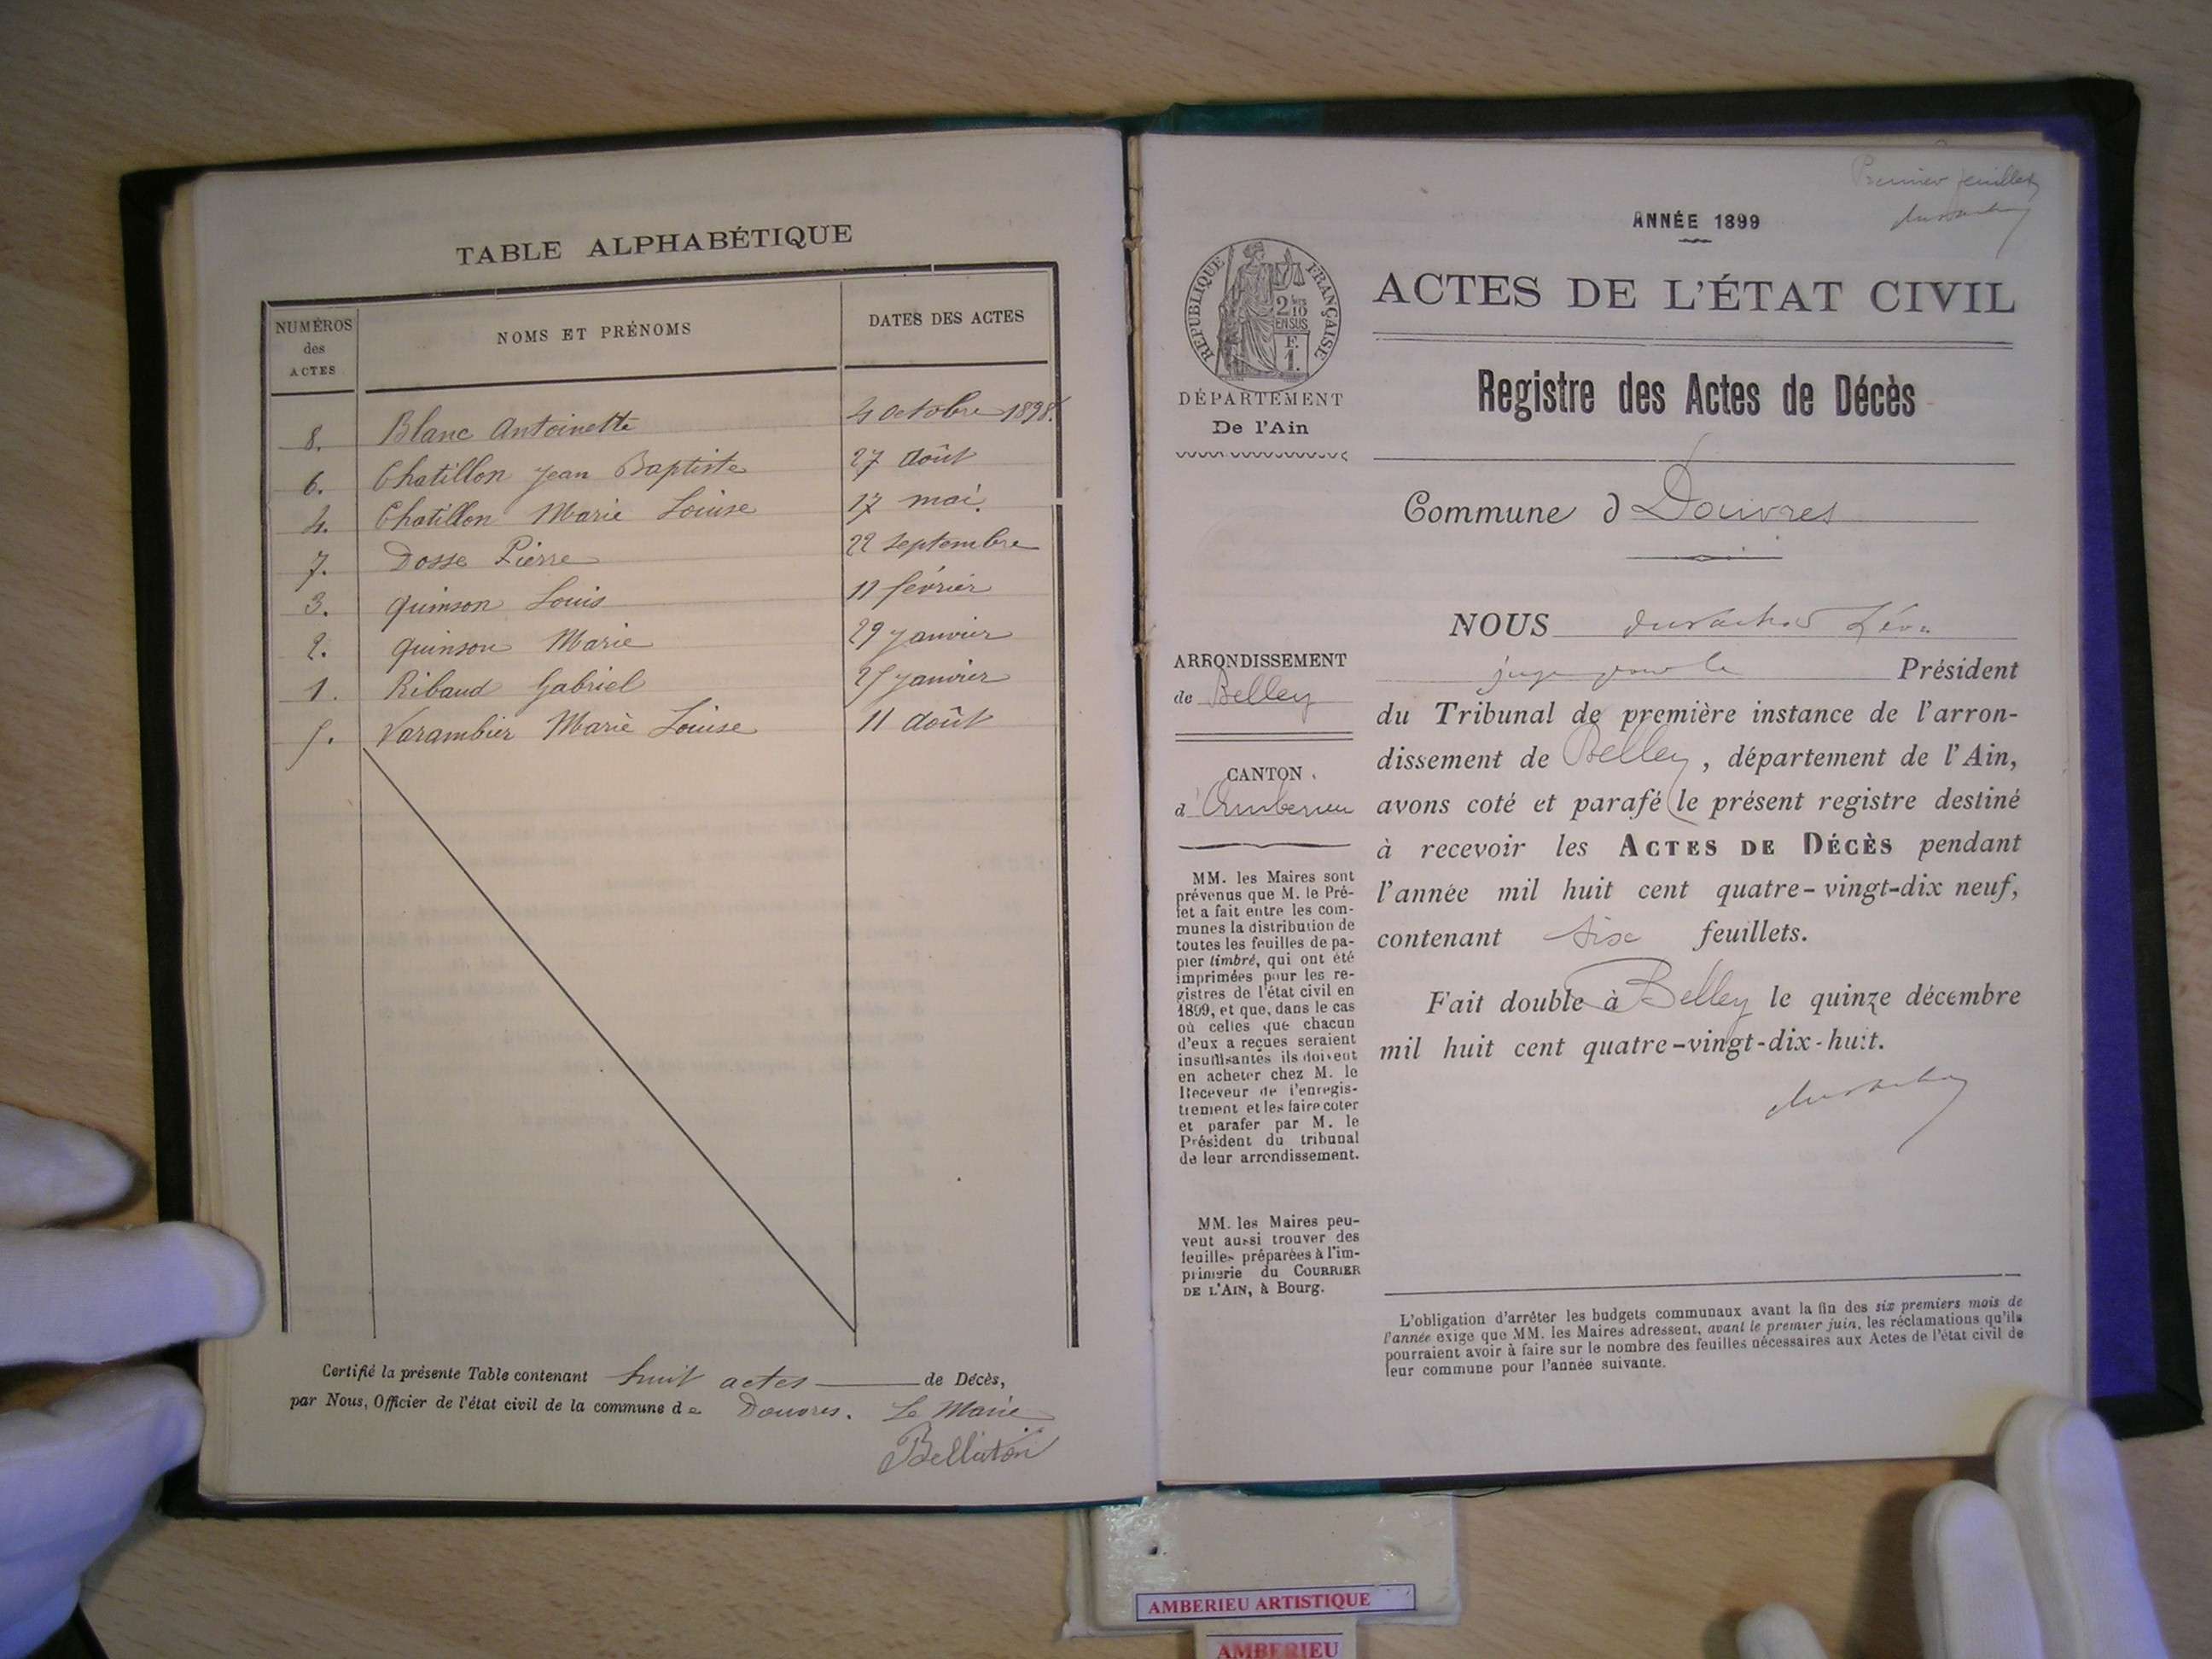 TABLE ALPHABÉTIQUE
NUMÉROS des ACTES
NOMS ET PRÉNOMS
DATES DES ACTES
8. Blanc Antoinette 4 octobre 1898.
6. Chatillon Jean Baptiste 27 août
4. Chatillon Marie Louise 17 mai.
7. Dosse Pierre 22 septembre
3. Quinson Louis 11 février
2. Quinson Marie 29 janvier
1. Ribaud Gabriel 25 janvier
5. Varambier Marie Louise 11 août
Certifié la présente Table contenant huit actes de Décès,
par Nous, Officier de l'état civil de la commune de Douvres. Le Maire
Premier feuillet
ANNÉE 1899
RÉPUBLIQUE FRANÇAISE
2/10 EN SUS
F. 1.
ACTES DE L'ÉTAT CIVIL
DÉPARTEMENT
De l'Ain
Registre des Actes de Décès
Commune d Douvres
ARRONDISSEMENT
de Belley
CANTON
d'Amberieu
MM. les Maires sont
prévenus que M. le Pré-
fet a fait entre les com-
munes la distribution de
toutes les feuilles de pa-
pier timbré, qui ont été
imprimées pour les re-
gistres de l'état civil en
1899, et que, dans le cas
où celles que chacun
d'eux a reçues seraient
insuffisantes ils doivent
en acheter chez M. le
Receveur de l'enregis-
trement et les faire coter
et parafer par M. le
Président du tribunal
de leur arrondissement.
MM. les Maires peu-
vent aussi trouver des
feuilles préparées à l'im-
primerie du COURRIER
DE L'AIN, à Bourg.
NOUS Léon
juge pour le Président
du Tribunal de première instance de l'arron-
dissement de Belley, département de l'Ain,
avons coté et parafé le présent registre destiné
à recevoir les ACTES DE DÉCÈS pendant
l'année mil huit cent quatre-vingt-dix neuf,
contenant six feuillets.
Fait double à Belley le quinze décembre
mil huit cent quatre-vingt-dix-huit.
L'obligation d'arrêter les budgets communaux avant la fin des six premiers mois de
l'année exige que MM. les Maires adressent, avant le premier juin, les réclamations qu'ils
pourraient avoir à faire sur le nombre des feuilles nécessaires aux Actes de l'état civil de
leur commune pour l'année suivante.
AMBERIEU ARTISTIQUE
AMBERIEU